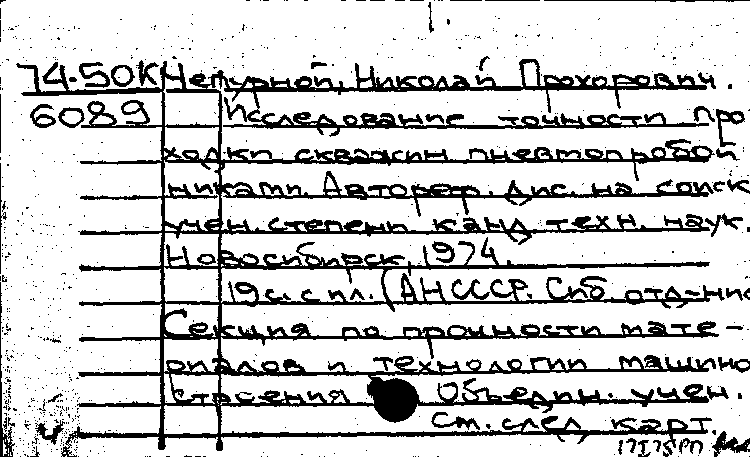 74-50К Чепурной, Николай Прохорович.
6089 Исследование точности про
ходки скважин пневмопробой
никами. Автореф. дис. на соиск
учен. степени канд техн. наук.
Новосибирск, 1974.
19 с. с ил. (АН СССР. Сиб. отд-ние
Секция по прочности мате-
риалов и технологии машино
строения Объедин. учен.
См. след карт.